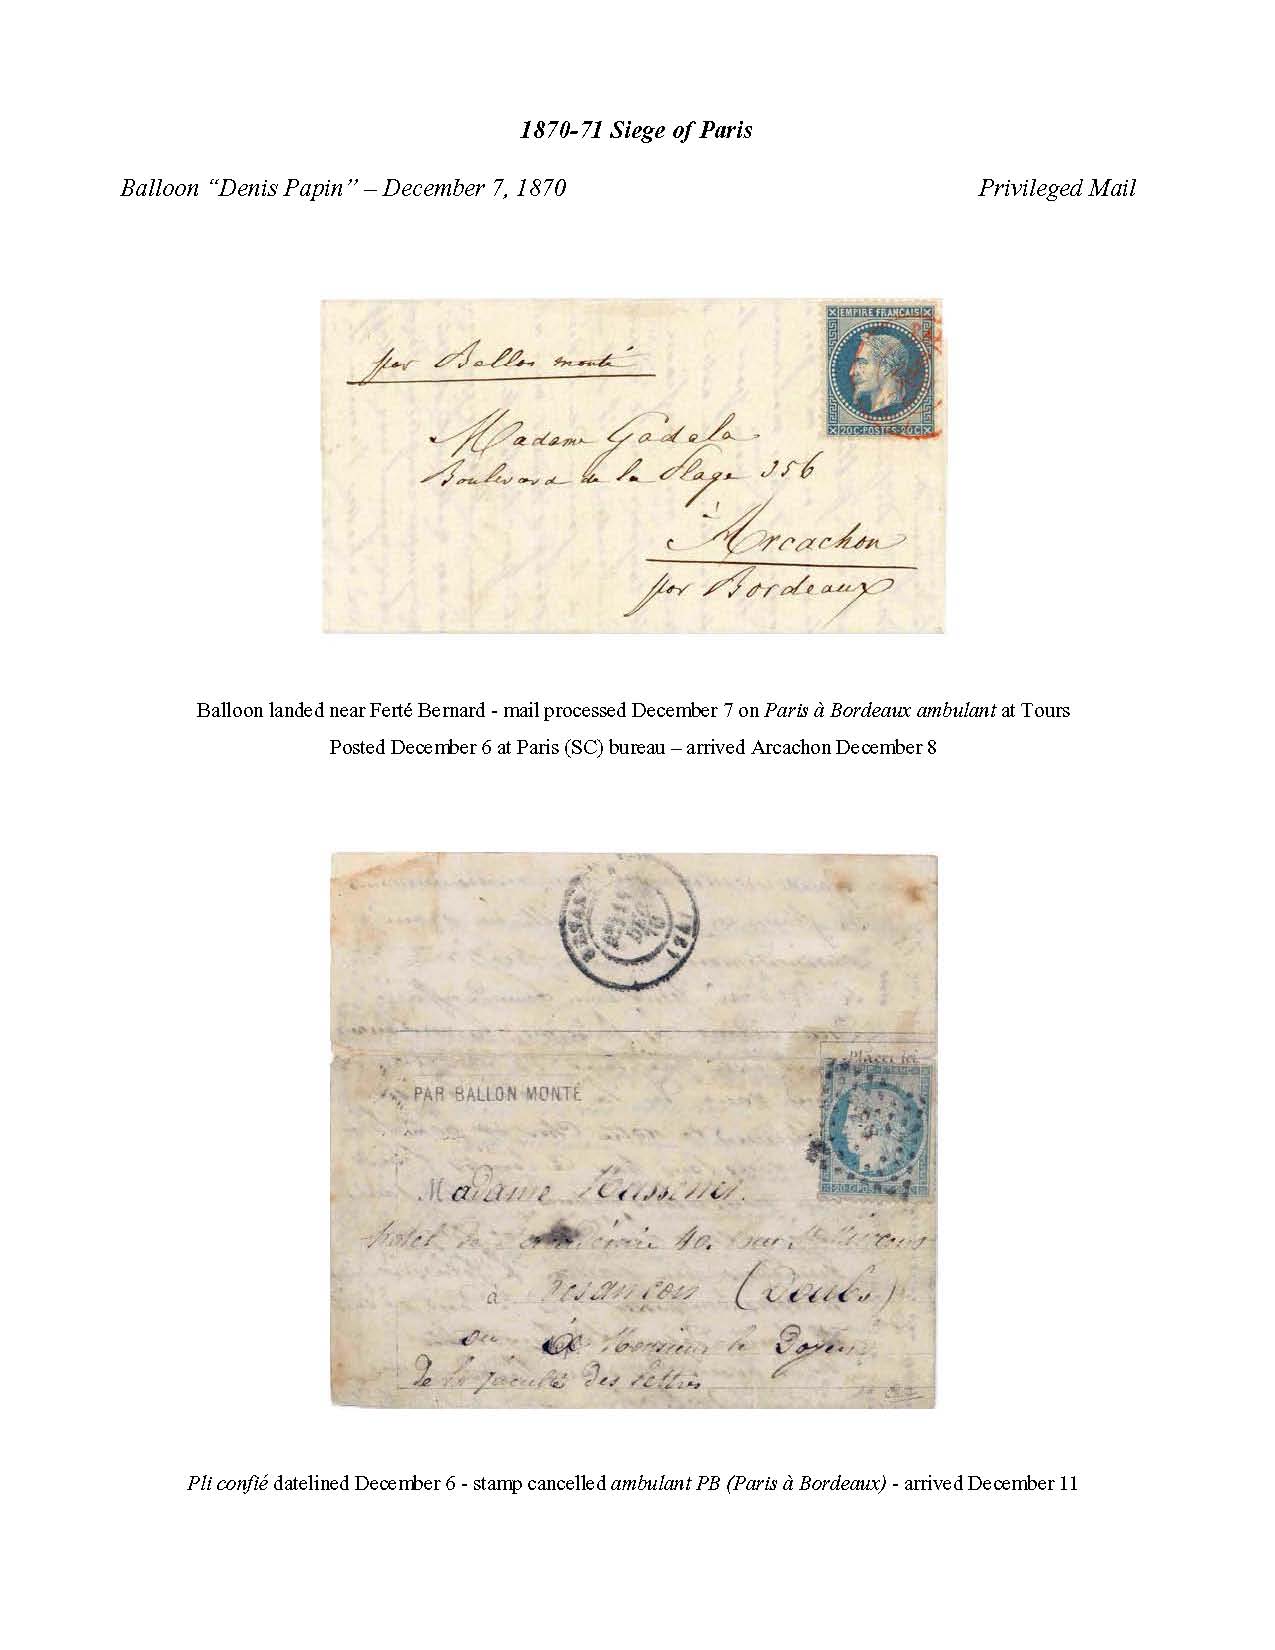 1870-71 Siege of Paris
Balloon “Denis Papin” – December 7, 1870
Privileged Mail
EMPIRE FRANÇAIS
20C-POSTES-20C
par Ballon monté
Madame Gadala
Boulevard de la Plage 256
à Arcachon
par Bordeaux
Balloon landed near Ferté Bernard - mail processed December 7 on Paris à Bordeaux ambulant at Tours
Posted December 6 at Paris (SC) bureau – arrived Arcachon December 8
DEC
Placer ici
PAR BALLON MONTÉ
Madame
hotel de
à Besançon (Doubs)
ou à Monsieur le Doyen
de la faculté des lettres
Pli confié datelined December 6 - stamp cancelled ambulant PB (Paris à Bordeaux) - arrived December 11